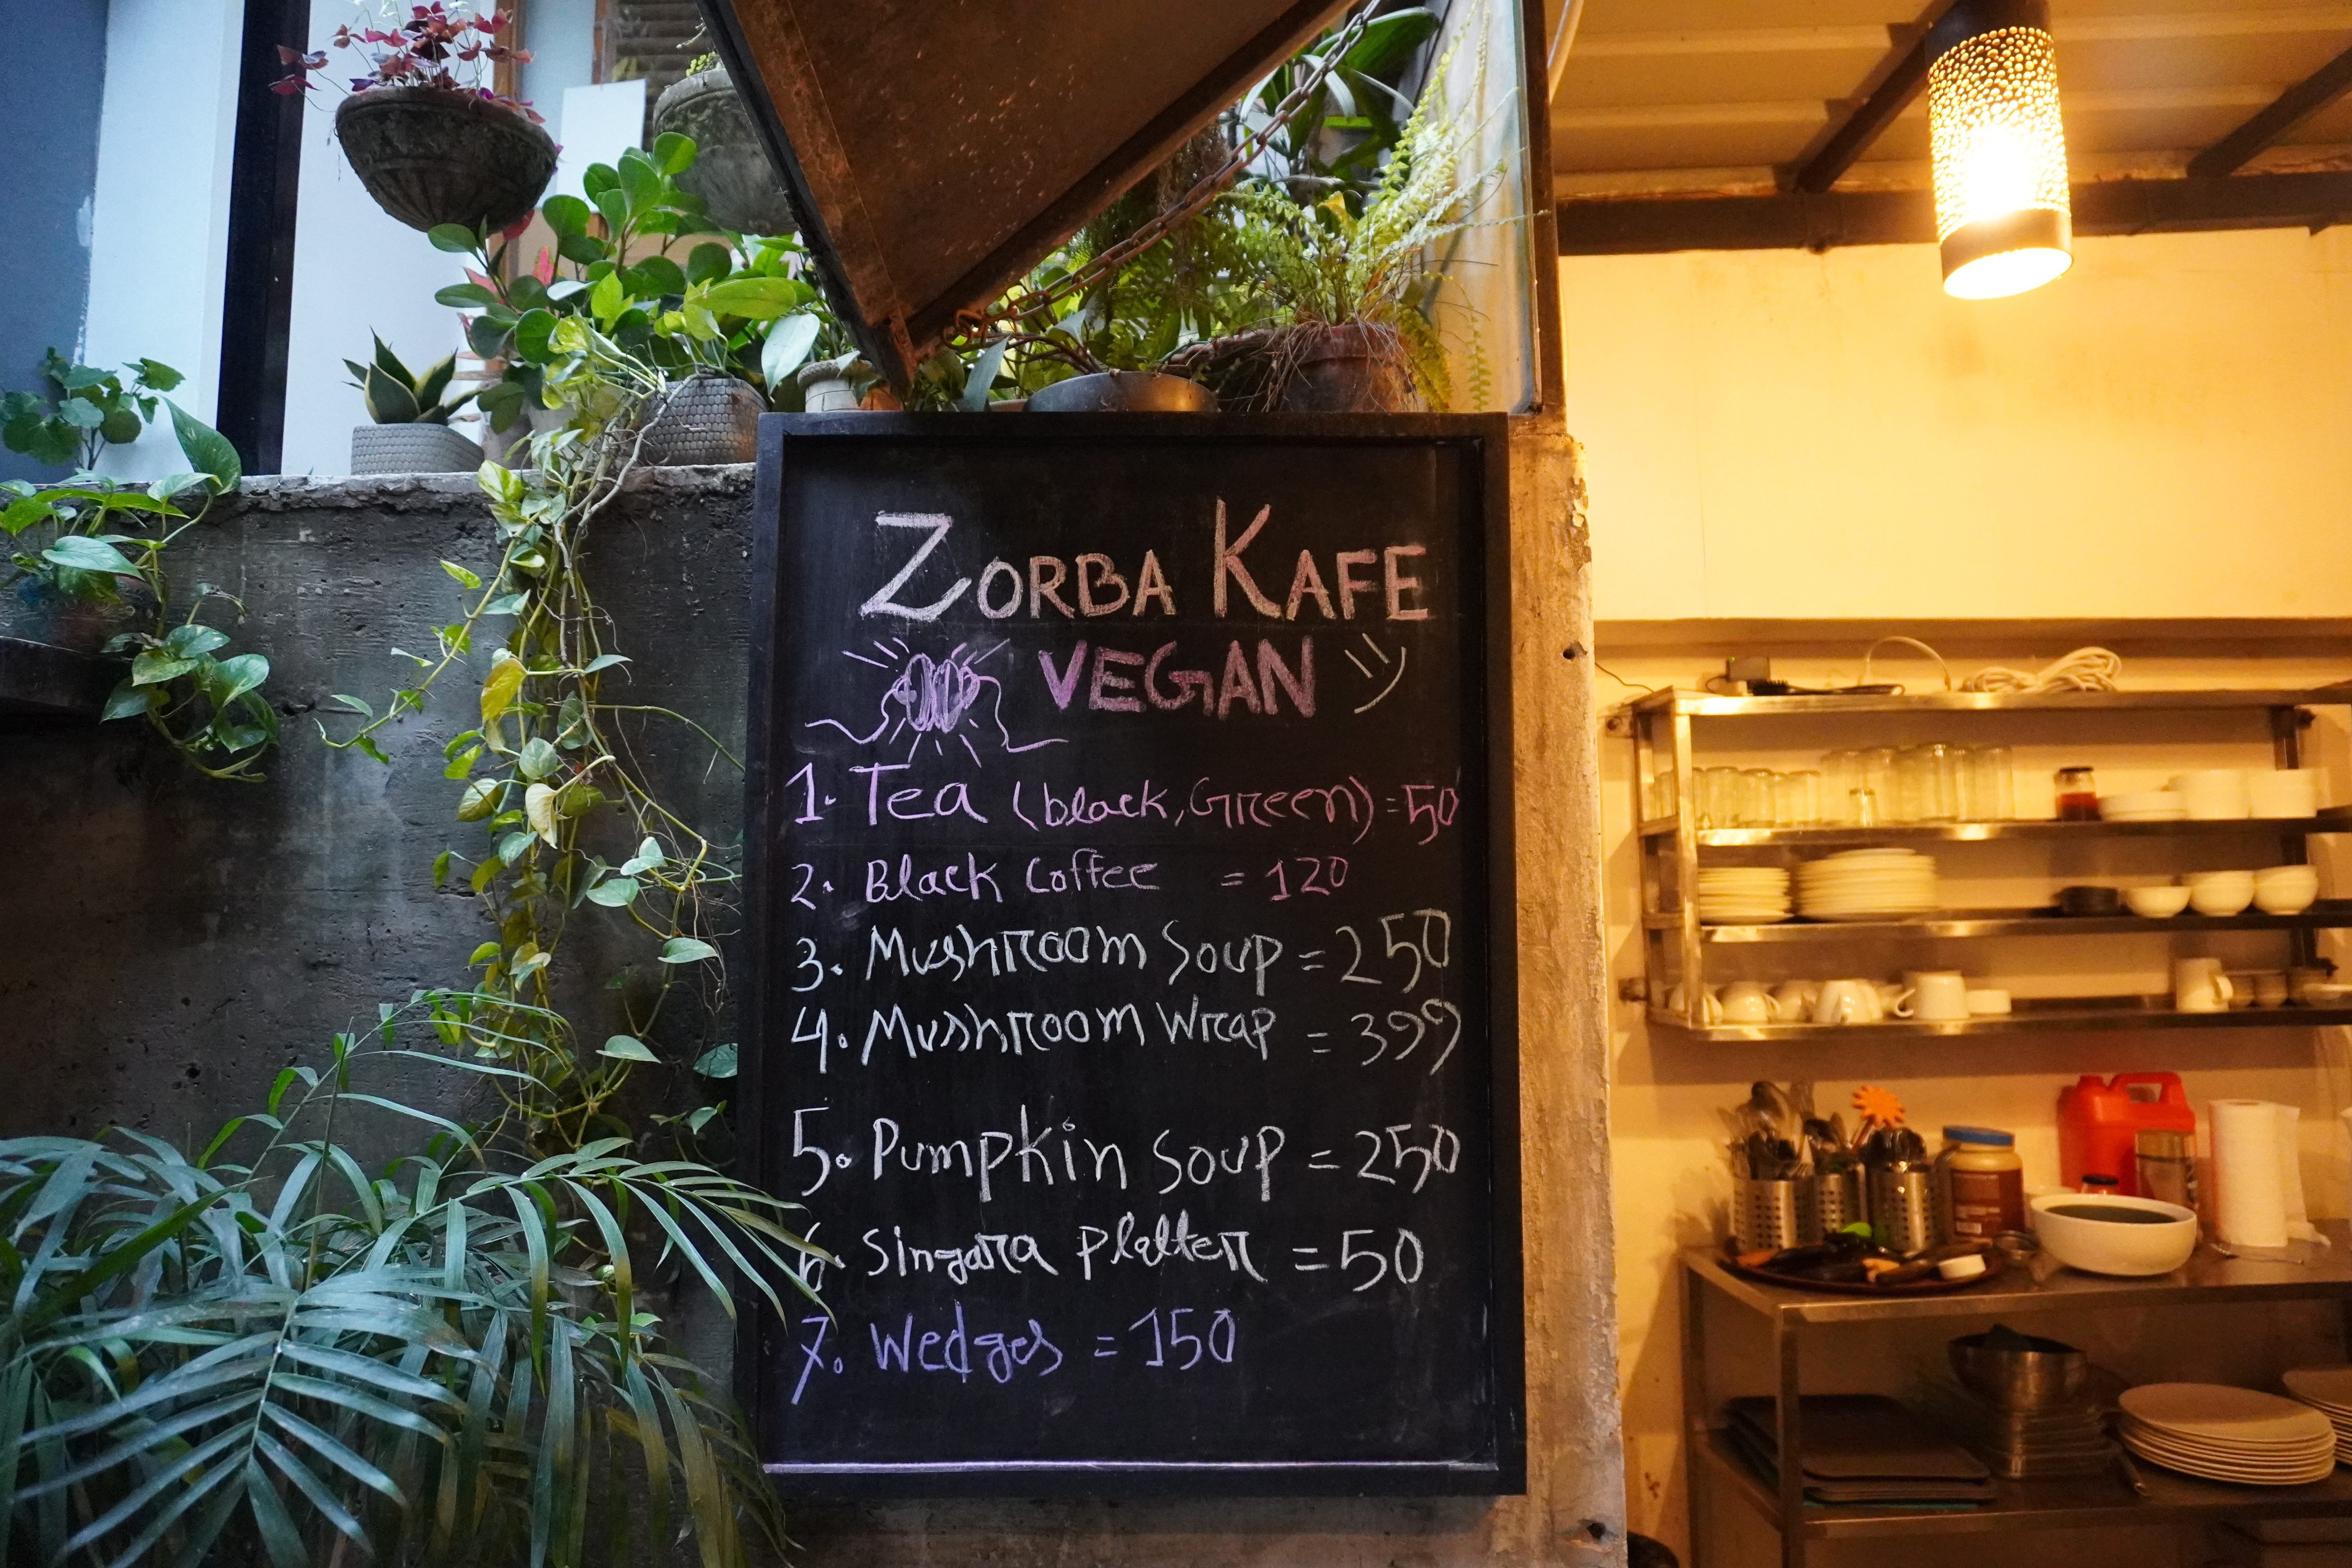 ZORBA KAFE
VEGAN
1. Tea (black, Green) = 50
2. Black Coffee = 120
3. Mushroom Soup = 250
4. Mushroom Wrap = 399
5. Pumpkin Soup = 250
6. Singara Platter = 50
7. Wedges = 150